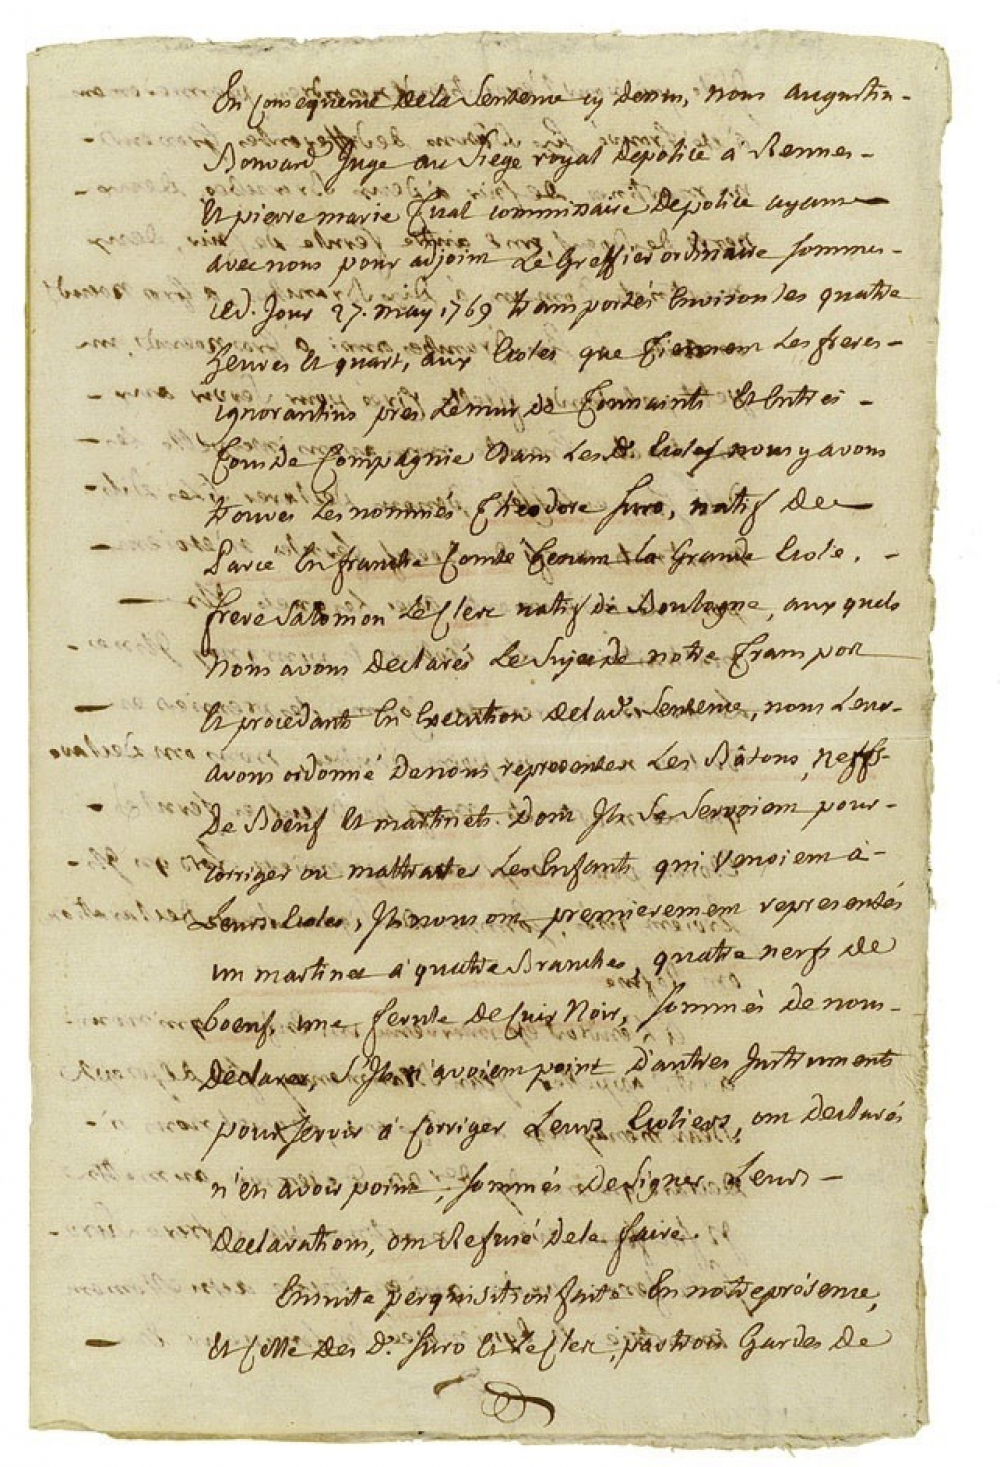 En Consequence dela Sentence cy dessus, nous augustin
Bonvard Juge au Siege royal depolice a Rennes
Et pierre marie Tual commissaire depolice ayant
avec nous pour adjoint Le Greffier ordinaire Sommes
led. Jour 27. may 1769 transportés Environ les quatre
heures Et quart, aux Ecoles que Tiennent Les freres
ignorantins pres Le mur de Toussaints Et Entrés
Tous De Compagnie Dans Les D. Ecoles nous y avons
trouvés Les nommés Théodore Juro, natif de
Larce En franche Comté Tenant la Grande Ecole,
frere Salomon Le Clerc natif de Boulogne, aux quels
Nous avons declarés Le Sujet de notre Transport
Et procedant En Execution de lad. Sentence, nous Leur
avons ordonné de nous representer Les Bâtons, neffs
De Boeuf Et martinets dont Ils Se Servoient pour
Corriger ou maltraiter Les Enfants qui Venoient a
Leurs Ecoles, Ils nous ont premierement representés
un martinet a quatre Branches, quatre nerfs de
boeuf, une ferule de Cuir Noir, Sommés de nous
Declarer, S'Ils n'avoient point d'autres Instruments
pour Servir a Corriger Leurs Ecoliers, ont declarés
n'en avoir point, Sommés de Signer Leurs
declarations, ont Refusé de le faire.
Ensuite perquisition faite En notre présence,
Et Celle des D. Juro Et Le Clerc, par trois Gardes de